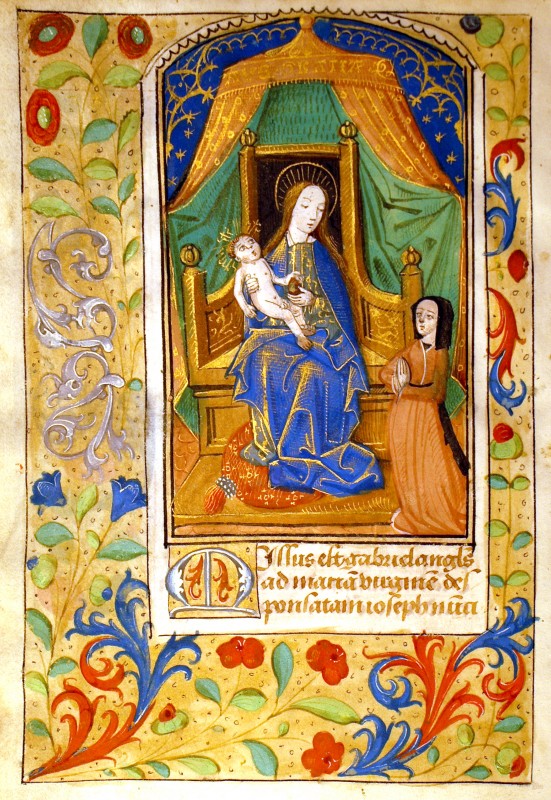 Missus est gabriel angl̄s
ad mariā virginē des
ponsatam ioseph nūci